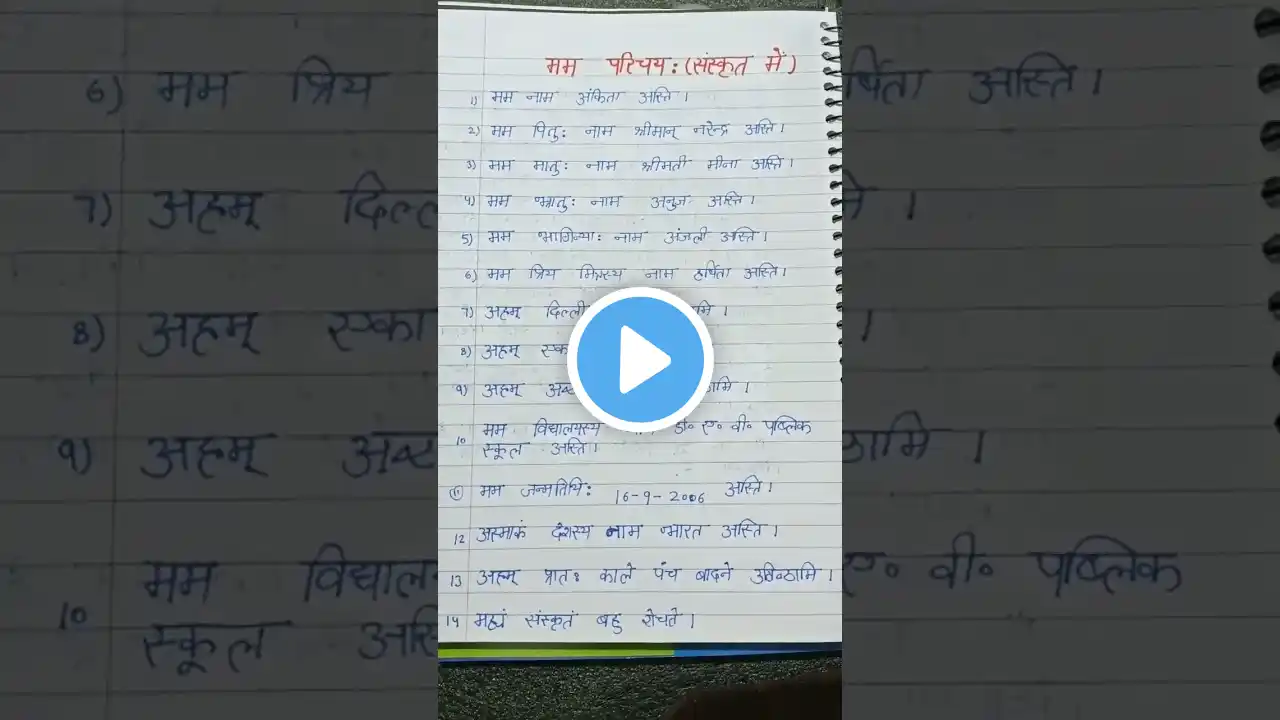 मम परिचय: (संस्कृत में)
1) मम नाम अंकिता अस्ति।
2) मम पितु: नाम श्रीमान् नरेन्द्र अस्ति।
3) मम मातु: नाम श्रीमती मीना अस्ति।
4) मम भ्रातु: नाम अनुज अस्ति।
5) मम भागिन्या: नाम अंजली अस्ति।
6) मम प्रिय मित्रस्य नाम हर्षिता अस्ति।
7) अहम् दिल्ली
8) अहम्
9) अहम्
10 मम विद्यालयस्य डी० ए० वी० पब्लिक
स्कूल अस्ति।
11 मम जन्मतिथि: 16-9-2006 अस्ति।
12 अस्माकं देशस्य नाम भारत अस्ति।
13 अहम् प्रात: काले पंच वादने उतिष्ठामि।
14 मह्यं संस्कृतं बहु रोचते।